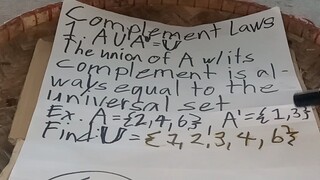 Complement Laws
I. A∪A'=U
The union of A w/its
complement is al-
ways equal to the
universal set
Ex. A={2,4,6}, A'={1,3}
Find: U={1,2,3,4,6}